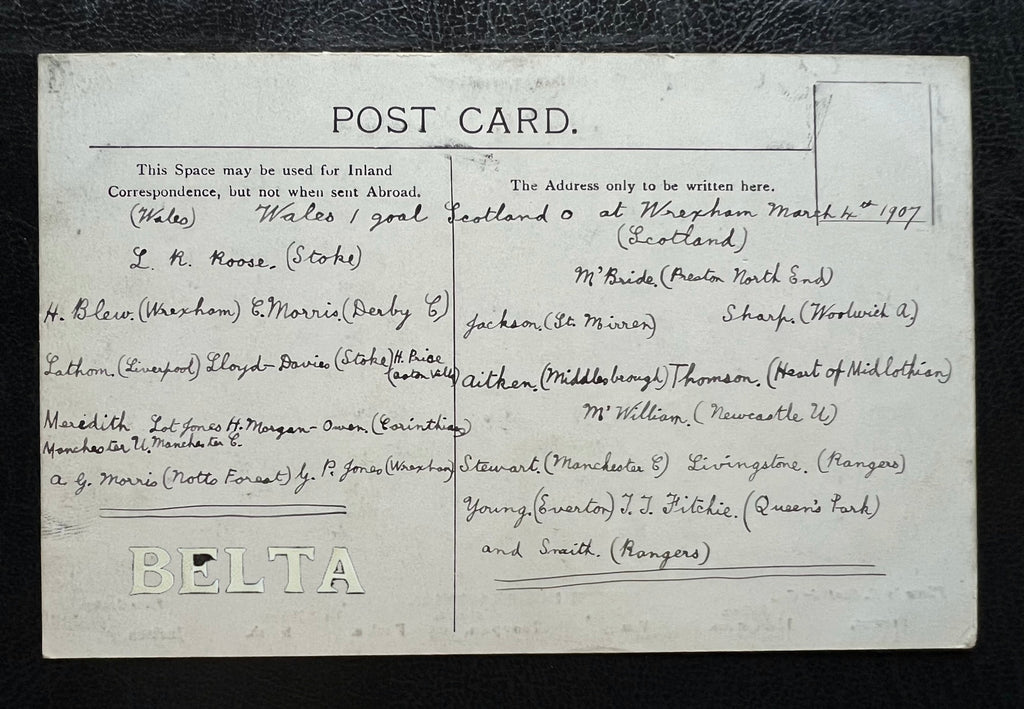 POST CARD.
This Space may be used for Inland
Correspondence, but not when sent Abroad.
The Address only to be written here.
(Wales) Wales 1 goal Scotland 0 at Wrexham March 4th 1907
(Scotland)
L. R. Roose. (Stoke)
H. Blew. (Wrexham) C. Morris. (Derby C)
Lathom. (Liverpool) Lloyd-Davies (Stoke) H. Price
(Aston Villa)
Meredith Lot Jones H. Morgan-Owen. (Corinthians)
Manchester U. Manchester C.
A G. Morris (Notts Forest) G. P. Jones (Wrexham)
BELTA
McBride. (Preston North End)
Jackson. (St. Mirren) Sharp. (Woolwich A.)
Aitken. (Middlesbrough) Thomson. (Heart of Midlothian)
McWilliam. (Newcastle U)
Stewart. (Manchester C) Livingstone. (Rangers)
Young. (Everton) T. T. Fitchie. (Queen's Park)
and Smith. (Rangers)